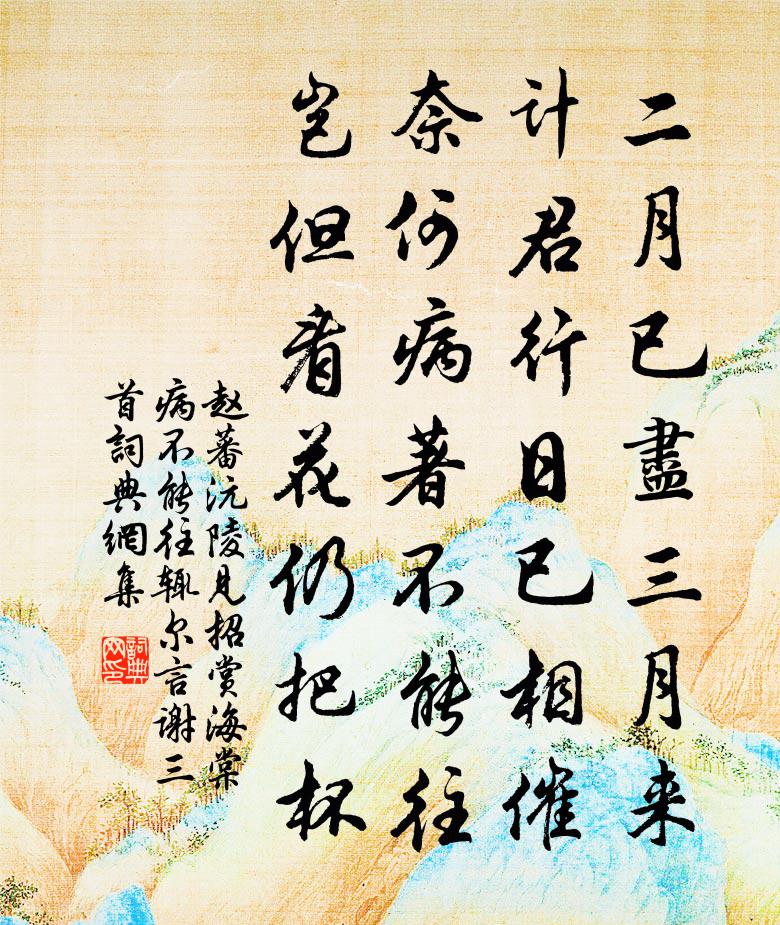 二月已盡三月来
计君行日已相催
奈何病著不能往
岂但看花仍把杯
赵蕃沅陵见招赏海棠
病不能往辄尔言谢三
首詞典網集
詞典
网印